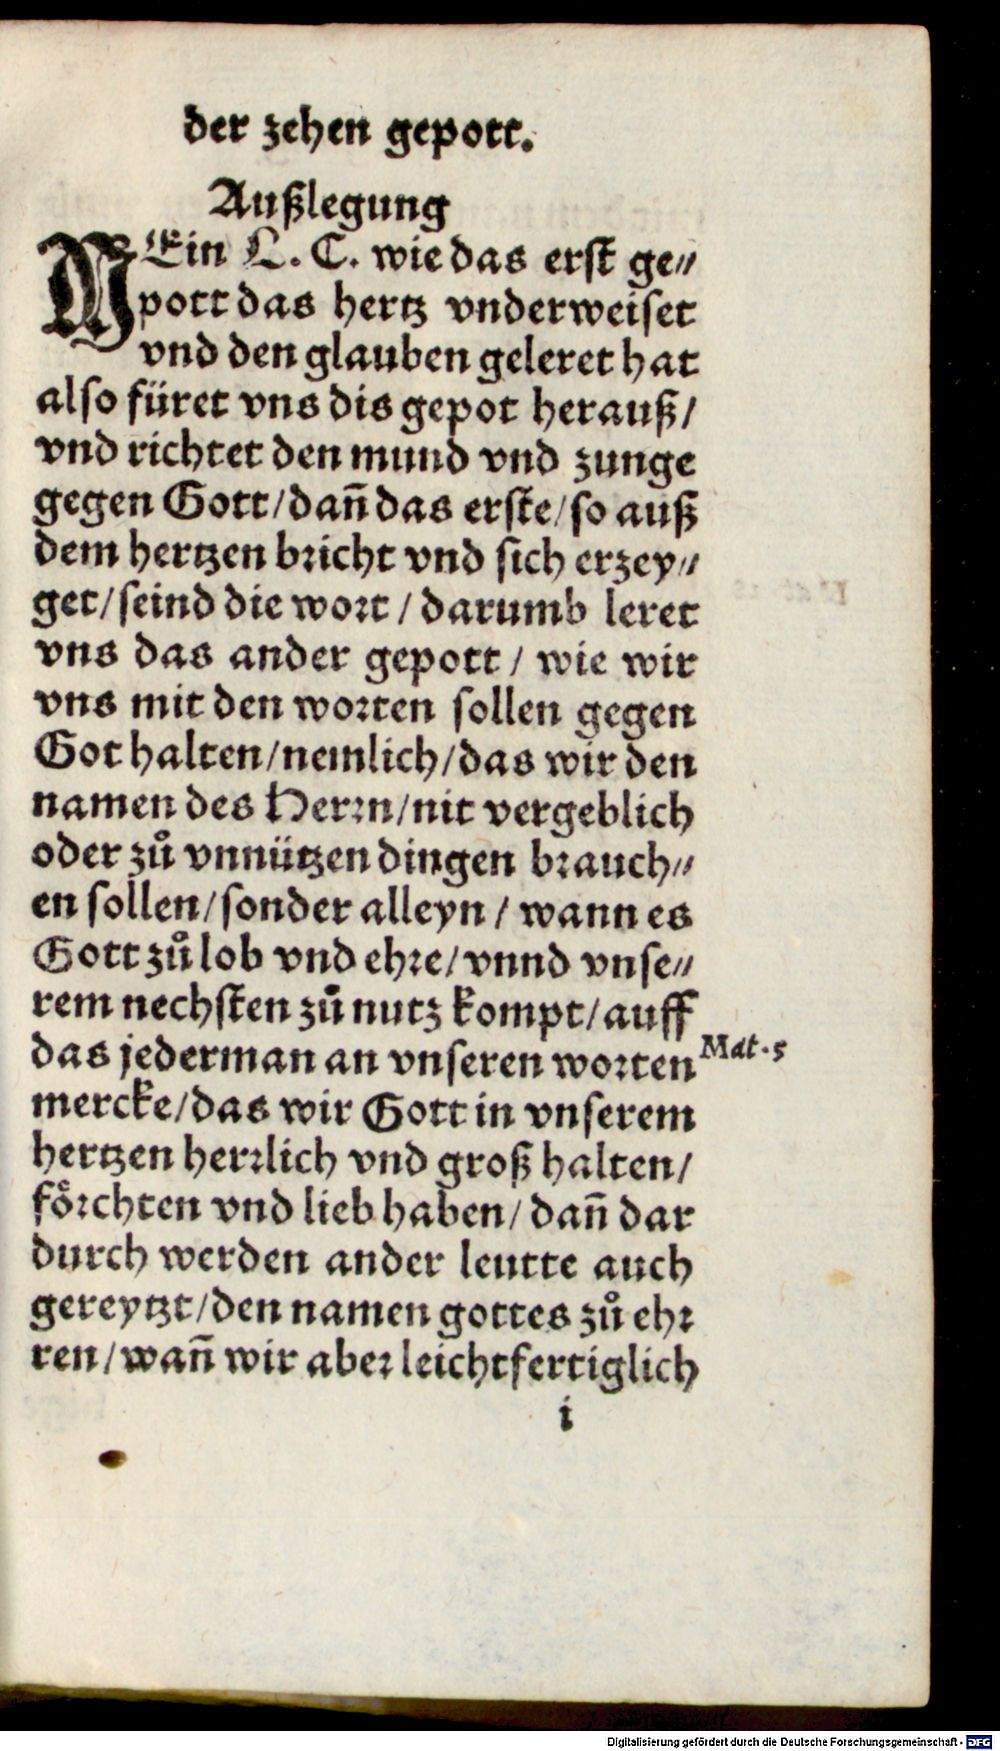 der zehen gepott.
Außlegung
MEin L. C. wie das erst ge⸗
pott das hertz vnderweiset
vnd den glauben geleret hat
also füret vns dis gepot herauß/
vnd richtet den mund vnd zunge
gegen Gott/dañ das erste/so auß
dem hertzen bricht vnd sich erzey⸗
get/seind die wort/darumb leret
vns das ander gepott/ wie wir
vns mit den worten sollen gegen
Got halten/nemlich/das wir den
namen des Herrn/nit vergeblich
oder zů vnnützen dingen brauch⸗
en sollen/sonder alleyn/ wann es
Gott zů lob vnd ehre/vnnd vnse⸗
rem nechsten zů nutz kompt/auff
das jederman an vnseren worten Mat.5
mercke/das wir Gott in vnserem
hertzen herrlich vnd groß halten/
foͤrchten vnd lieb haben/dañ dar
durch werden ander leutte auch
gereytzt/den namen gottes zů ehr
ren/wañ wir aber leichtfertiglich
i
Digitalisierung gefördert durch die Deutsche Forschungsgemeinschaft - DFG